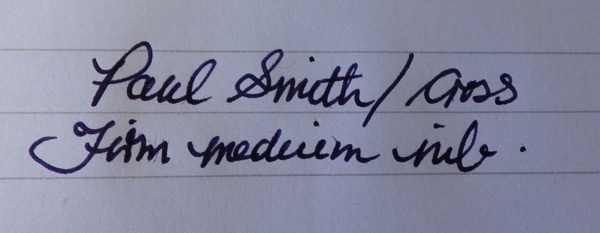 Paul Smith/Cross
Firm medium nib.